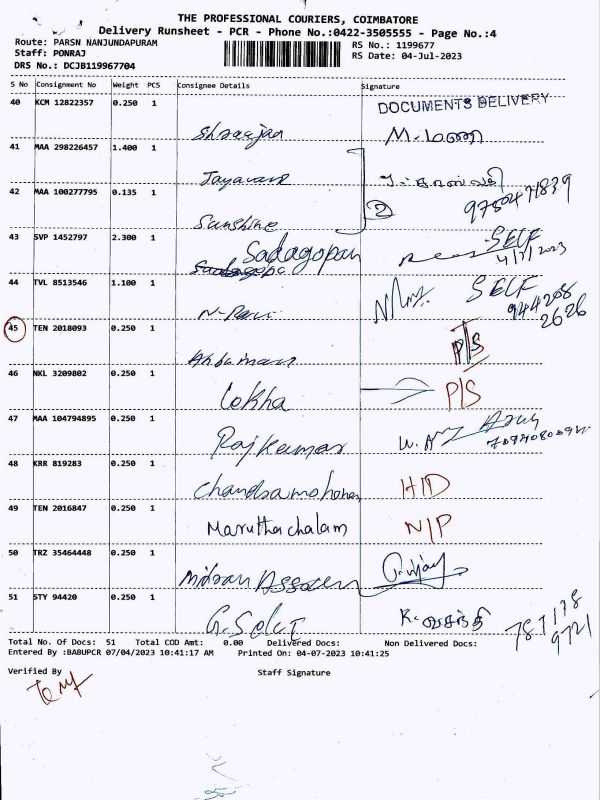 THE PROFESSIONAL COURIERS, COIMBATORE
Delivery Runsheet - PCR - Phone No.:0422-3505555 - Page No.:4
Route: PARSN NANJUNDAPURAM RS No.: 1199677
Staff: PONRAJ RS Date: 04-Jul-2023
DRS No.: DCJB119967704
S No Consignment No Weight PCS Consignee Details Signature
40 KCM 12822357 0.250 1 DOCUMENTS DELIVERY
41 MAA 298226457 1.400 1
42 MAA 100277795 0.135 1
Sunshine
43 SVP 1452797 2.300 1 Sadagopan SELF
4/7/2023
44 TVL 8513546 1.100 1 SELF
N-Ravi 944208
2626
45 TEN 2018093 0.250 1 P/S
46 NKL 3209802 0.250 1
Lokha P/S
47 MAA 104794895 0.250 1
Rajkumar
48 KRR 819283 0.250 1
Chandramohan H/D
49 TEN 2016847 0.250 1
Maruthachalam N/P
50 TRZ 35464448 0.250 1
51 STY 94420 0.250 1
G. Selvi K. வசந்தி 787178
9721
Total No. Of Docs: 51 Total COD Amt: 0.00 Delivered Docs: Non Delivered Docs:
Entered By :BABUPCR 07/04/2023 10:41:17 AM Printed On: 04-07-2023 10:41:25
Verified By Staff Signature